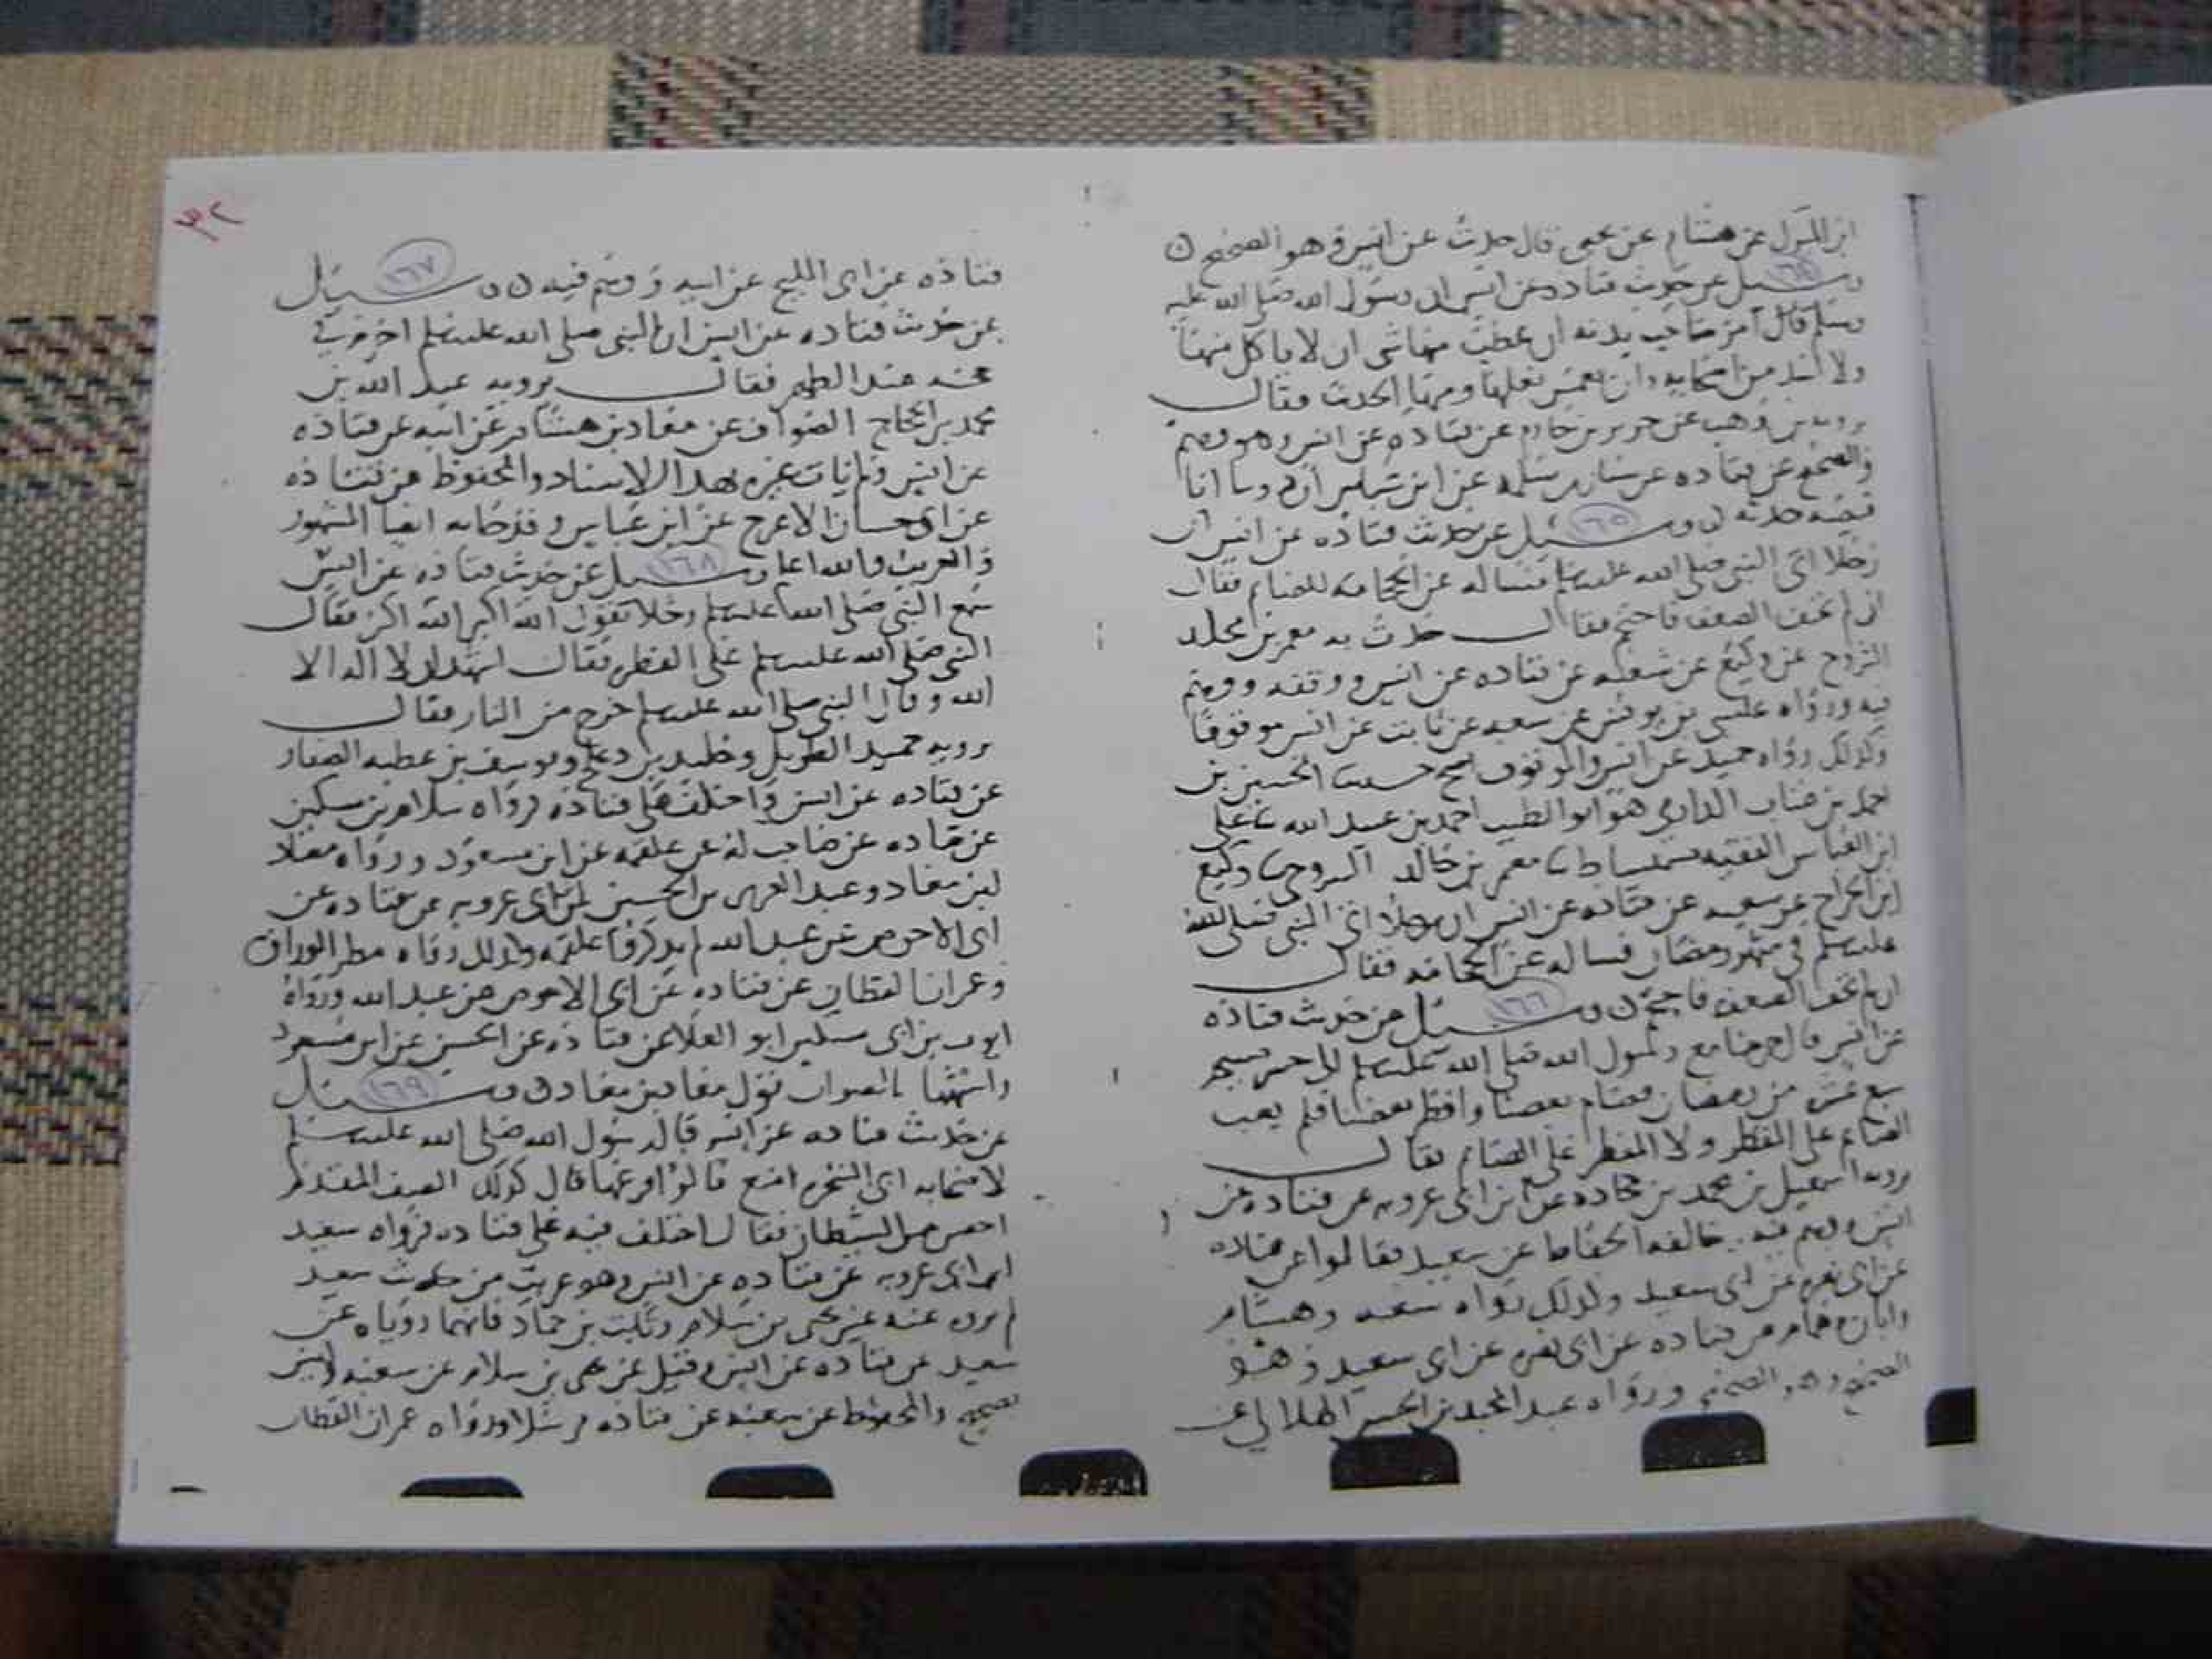 ابن المبارك عن هشام عن يحيى قال حدثت عن انس وهو الصحيح ٥
١٦٤
وسئل عن حديث قتاده عن انس ان رسول الله صلى الله عليه
وسلم قال امر صاحب بدنه ان عطبت منها شي ان لا ياكل منها
ولا احد من اصحابه وان يغمس نعلها ومنها الحديث فقال
يرويه بن وهب عن جرير بن حازم عن قتاده عن انس وهو وهم
والصحيح عن قتاده عن سنان بن سلمه عن ابن عباس ان ذويبا ابا
قبيصه حدثه ٥ وسئل ١٦٥ عن حديث قتاده عن انس ان
رجلا اتى النبي صلى الله عليه وسلم فساله عن الحجامه للصائم فقال
ان لم تخف الضعف فاحتجم فقال حدث به معمر بن مخلد
السروجي عن وكيع عن شعبه عن قتاده عن انس ووقفه ووهم
فيه ورواه عيسى بن يونس عن سعيد عن ثابت عن انس موقوفا
وكذلك رواه حميد عن انس والموقوف اصح حدثنا الحسين بن
احمد بن عتاب الداري هو ابو الطيب احمد بن عبد الله نا علي
ابن العباس الفقيه نا معمر بن خالد السروجي نا وكيع
ابن الجراح عن سعيد عن قتاده عن انس ان رجلا اتى النبي صلى الله
عليه وسلم في شهر رمضان فساله عن الحجامه فقال
ان لم تخف الضعف فاحتجم ٥ وسئل ١٦٦ عن حديث قتاده
عن انس قال خرجنا مع رسول الله صلى الله عليه وسلم
سبع عشره من رمضان فصام بعضنا وافطر بعضنا فلم يعب
الصائم على المفطر ولا المفطر على الصائم فقال
يرويه اسمعيل بن محمد بن جحاده عن ابن ابي عروبه عن قتاده عن
انس ووهم فيه خالفه الحفاظ عن سعيد فقالوا عن قتاده
عن ابي نضره عن ابي سعيد وكذلك رواه شعبه وهشام
وابان وهمام عن قتاده عن ابي نضره عن ابي سعيد وهو
الصحيح ورواه عبد المجيد بن الحسن الهلالي عن
٣٢
قتاده عن ابي المليح عن ابيه ووهم فيه ٥ وسئل ١٦٧
عن حديث قتاده عن انس ان النبي صلى الله عليه وسلم احرم في
حجته عند الظهر فقال يرويه عبد الله بن
محمد بن الحجاج الصواف عن معاذ بن هشام عن ابيه عن قتاده
عن انس ولم يات غيره بهذا الاسناد والمحفوظ عن قتاده
عن ابي حسان الاعرج عن ابن عباس وقد حدث به ايضا المشهور
والغريب والله اعلم وسئل ١٦٨ عن حديث قتاده عن انس
سمع النبي صلى الله عليه وسلم رجلا يقول الله اكبر الله اكبر فقال
النبي صلى الله عليه وسلم على الفطره فقال اشهد ان لا اله الا
الله وقال النبي صلى الله عليه وسلم خرج من النار فقال
يرويه حميد الطويل وخليد بن دعلج ويوسف بن عطيه الصفار
عن قتاده عن انس واختلف على قتاده فرواه سلام بن مسكين
عن قتاده عن صاحب له عن علقمه عن ابن مسعود ورواه معاذ
بن معاذ وعبد العزيز بن الحسين عن ابن ابي عروبه عن قتاده عن
ابي الاحوص عن عبد الله لم يذكر فيه علقمه وكذلك رواه مطر الوراق
وعمران القطان عن قتاده عن ابي الاحوص عن عبد الله ورواه
ايوب بن ابي مسكين ابو العلا عن قتاده عن الحسن عن ابن مسعود
واشبهها بالصواب قول معاذ بن معاذ ٥ وسئل ١٦٩
عن حديث قتاده عن انس قال رسول الله صلى الله عليه وسلم
لاصحابه اي الشجره امنع قالوا فرعها قال كذلك الصف المقدم
احصن من الشيطان فقال اختلف فيه على قتاده فرواه سعيد
ابن ابي عروبه عن قتاده عن انس وهو غريب من حديث سعيد
لم يروه عنه غير يحيى بن سلام وثابت بن حماد فانهما روياه عن
سعيد عن قتاده عن انس وقيل عن يحيى بن سلام عن شعبه وليس
بصحيح والمحفوظ عن شعبه عن قتاده مرسلا ورواه عمران القطان